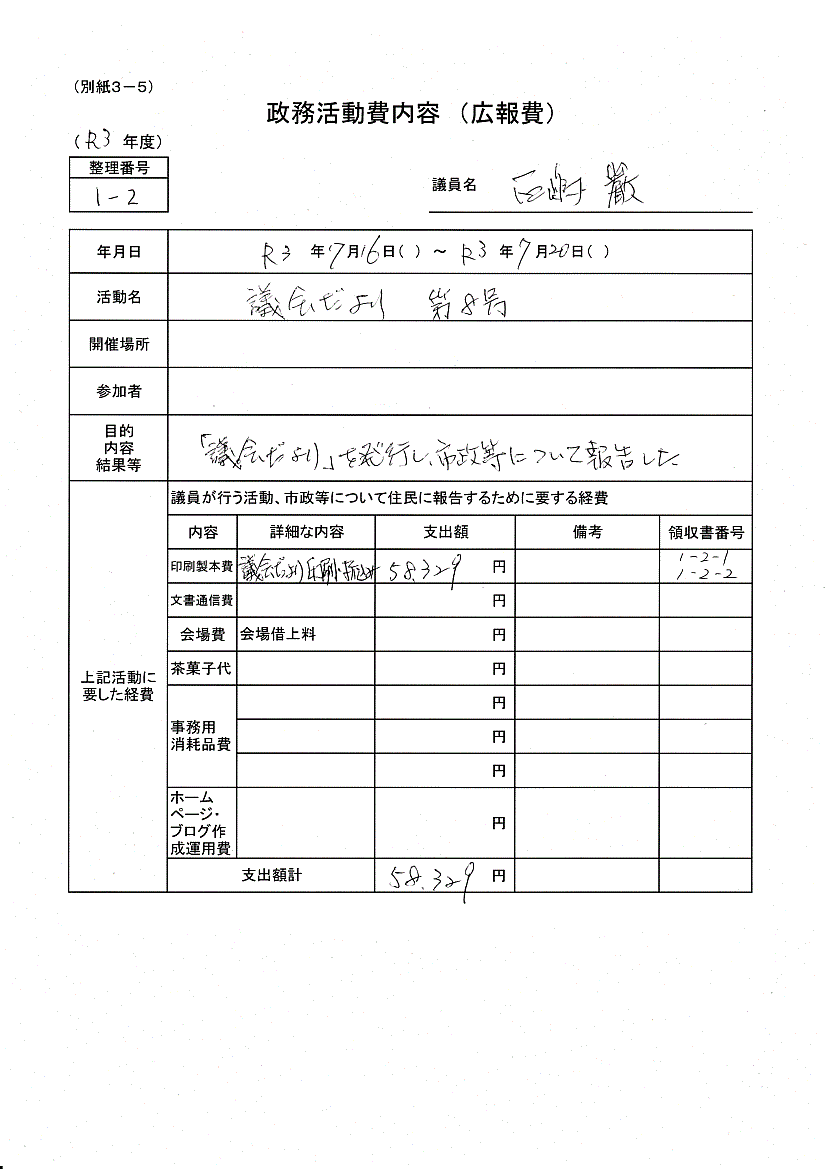 （別紙３－５）
政務活動費内容（広報費）
（R3 年度）
整理番号
1-2
議員名
年月日 R3 年7月16日( ) ～ R3 年7月20日( )
活動名 議会だより 第8号
開催場所
参加者
目的
内容
結果等
「議会だより」を発行し、市政等について報告した
上記活動に
要した経費
議員が行う活動、市政等について住民に報告するために要する経費
内容 詳細な内容 支出額 備考 領収書番号
印刷製本費 議会だより印刷・折込み 58.329 円 1-2-1
1-2-2
文書通信費 円
会場費 会場借上料 円
茶菓子代 円
事務用
消耗品費
円
円
円
ホーム
ページ・
ブログ作
成運用費
円
支出額計 58.329 円